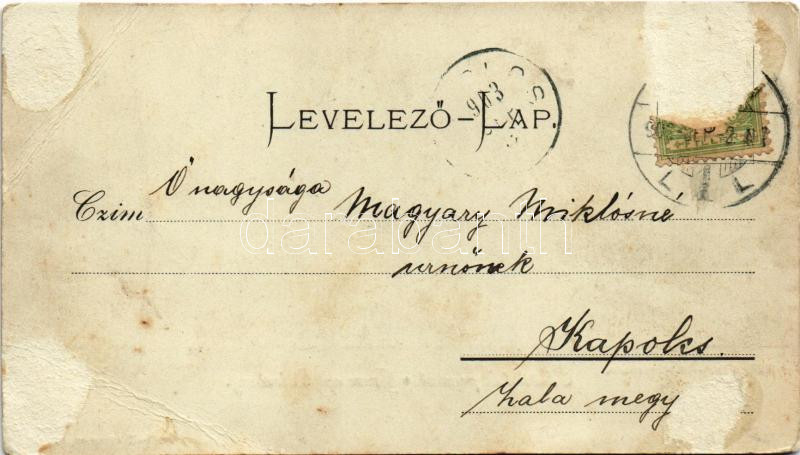 LEVELEZŐ-LAP.
903
Czim Ő nagysága Magyary Miklósné
urnőnek
Kapolcs.
Zala megy
darabanth